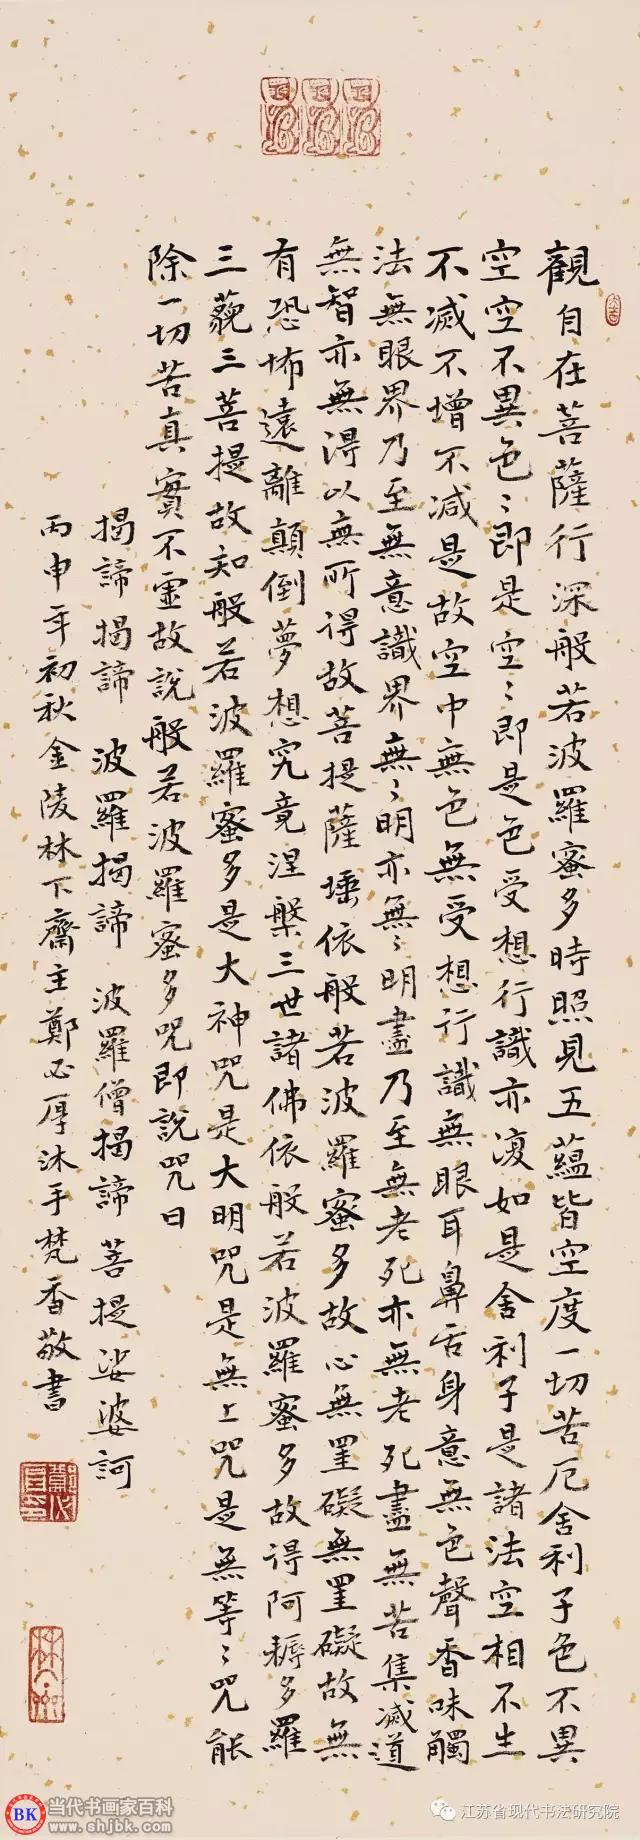 觀自在菩薩行深般若波羅蜜多時照見五蘊皆空度一切苦厄舍利子色不異
空空不異色〻即是空〻即是色受想行識亦復如是舍利子是諸法空相不生
不滅不增不减是故空中無色無受想行識無眼耳鼻舌身意無色聲香味觸
法無眼界乃至無意識界無〻明亦無〻明盡乃至無老死亦無老死盡無苦集滅道
無智亦無得以無所得故菩提薩埵依般若波羅蜜多故心無罣礙無罣礙故無
有恐怖遠離顛倒夢想究竟涅槃三世諸佛依般若波羅蜜多故得阿耨多羅
三藐三菩提故知般若波羅蜜多是大神咒是大明咒是無上咒是無等〻咒能
除一切苦真實不虛故說般若波羅蜜多咒即說咒曰
揭諦揭諦 波羅揭諦 波羅僧揭諦 菩提娑婆訶
丙申年初秋金陵林下齋主鄭必厚沐手梵香敬書
BK 当代书画家百科
www.shjbk.com
江苏省现代书法研究院